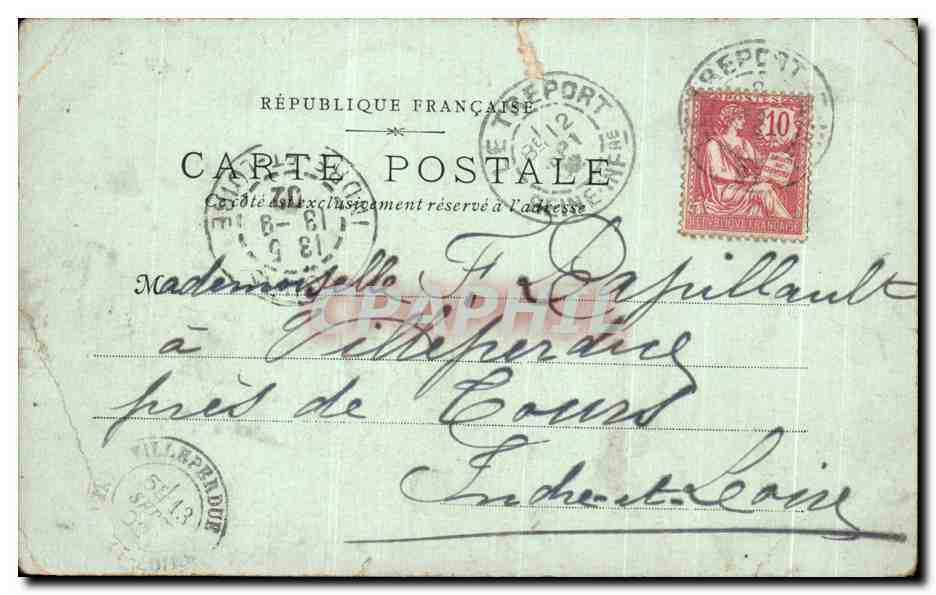 RÉPUBLIQUE FRANÇAISE
CARTE POSTALE
Ce côté est exclusivement réservé à l'adresse
LE TREPORT
12
SEINE INFRE
TREPORT
POSTES
10
REPUBLIQUE FRANÇAISE
INDRE ET LOIRE
13 5
13 -9
02
Mademoiselle F. Papillault
CPARAMA
CPAPHIL
à Villeperdue
près de Tours
Indre-et-Loire
VILLEPERDUE
13
SEPT